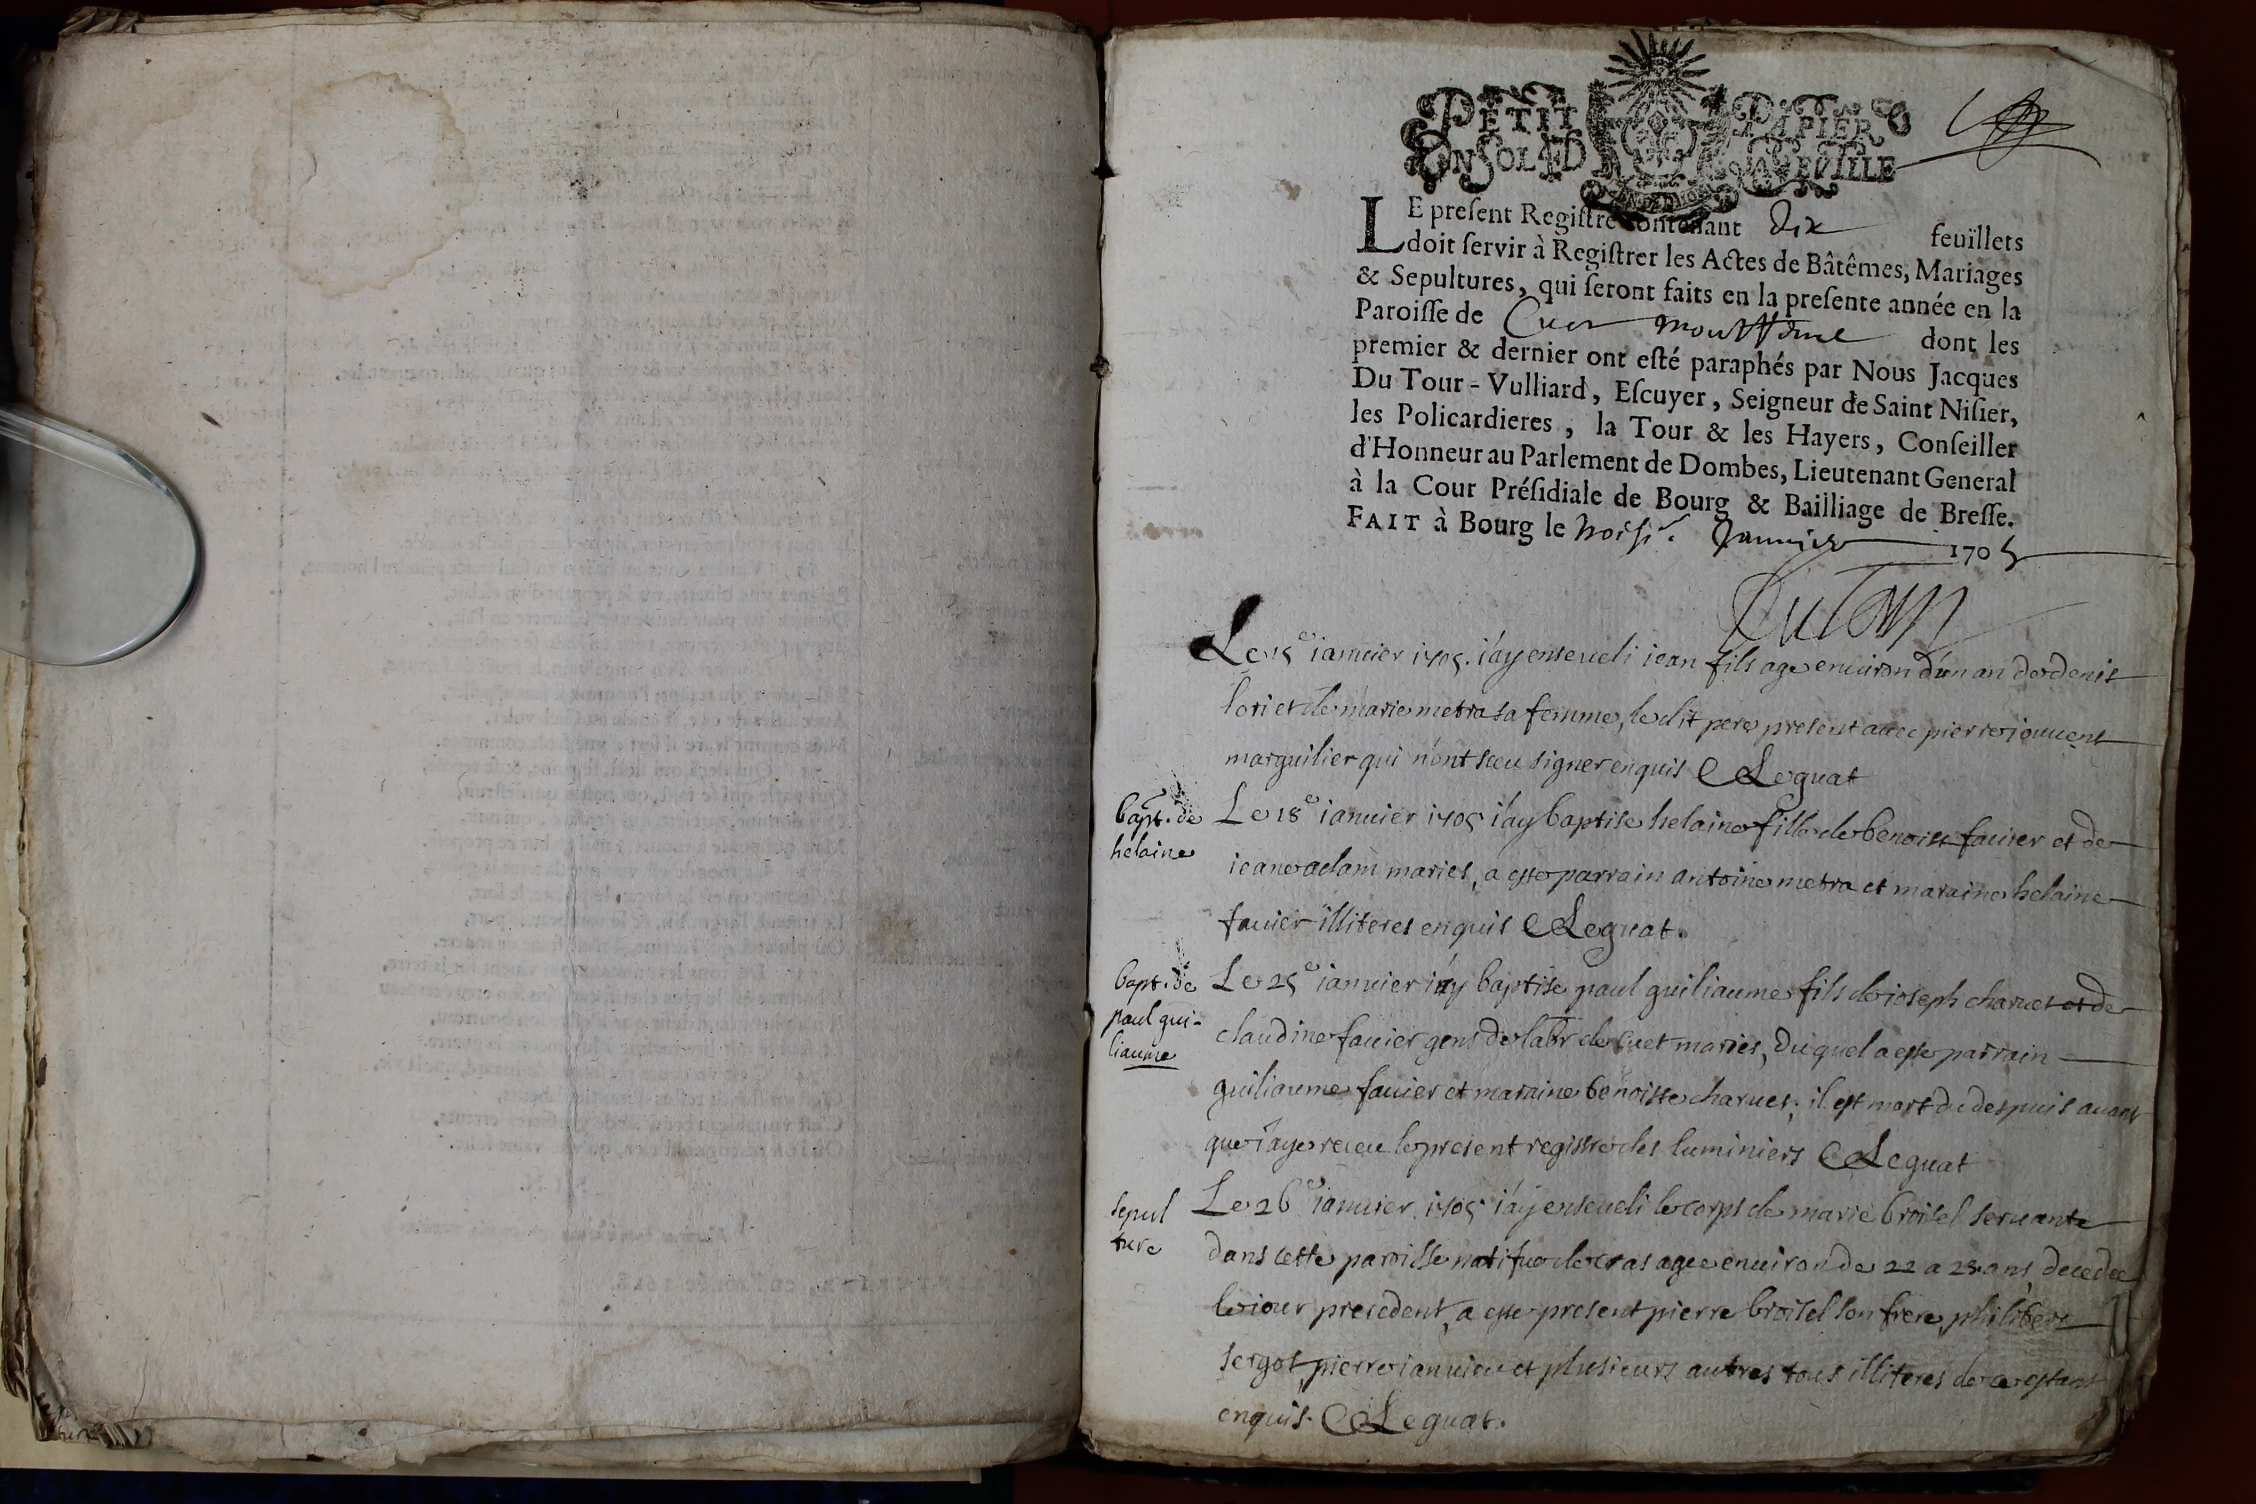 PETIT PAPIER
UN SOL LA FEUILLE
LE preſent Regiſtre contenant dix feuïllets
doit ſervir à Regiſtrer les Actes de Bâtêmes, Mariages
& Sepultures, qui ſeront faits en la preſente année en la
Paroiſſe de Cuet dont les
premier & dernier ont eſté paraphés par Nous Jacques
Du Tour-Vulliard, Eſcuyer, Seigneur de Saint Niſier,
les Policardieres, la Tour & les Hayers, Conſeiller
d'Honneur au Parlement de Dombes, Lieutenant General
à la Cour Préſidiale de Bourg & Bailliage de Breſſe.
FAIT à Bourg le Janvier 1705
Dutour
Le 15e ianuier 1705. i'ay enseueli iean fils age enuiron d'un an de denis
lori et de marie metra sa femme, le dit pere present auec pierre iouuent
marguilier qui n'ont sceu signer enquis C Leguat
bapt. de
helaine
Le 18e ianuier 1705 i'ay baptise helaine fille de benoist fauier et de
ieane adam mariés, a este parrain antoine metra et maraine helaine
fauier illiteres enquis C Leguat.
bapt. de
paul gui-
liaume
Le 25e ianuier i'ay baptise paul guiliaume fils de ioseph charuet et de
claudine fauier gens de labr de cuet mariés, duquel a este parrain
guiliaume fauier et maraine benoiste charuet; il est mort du despuis auant
que i'aye receu le present registre des luminiers C Leguat
sepul
ture
Le 26e ianuier 1705 i'ay enseueli le corps de marie broisel seruante
dans cette paroisse natifue de cras agee enuiron de 22 a 23 ans, decedee
le iour precedent, a este present pierre broisel son frere, philibert
sergot, pierre ianuieu et plusieurs autres tous illiteres de ce estant
enquis. C Leguat.